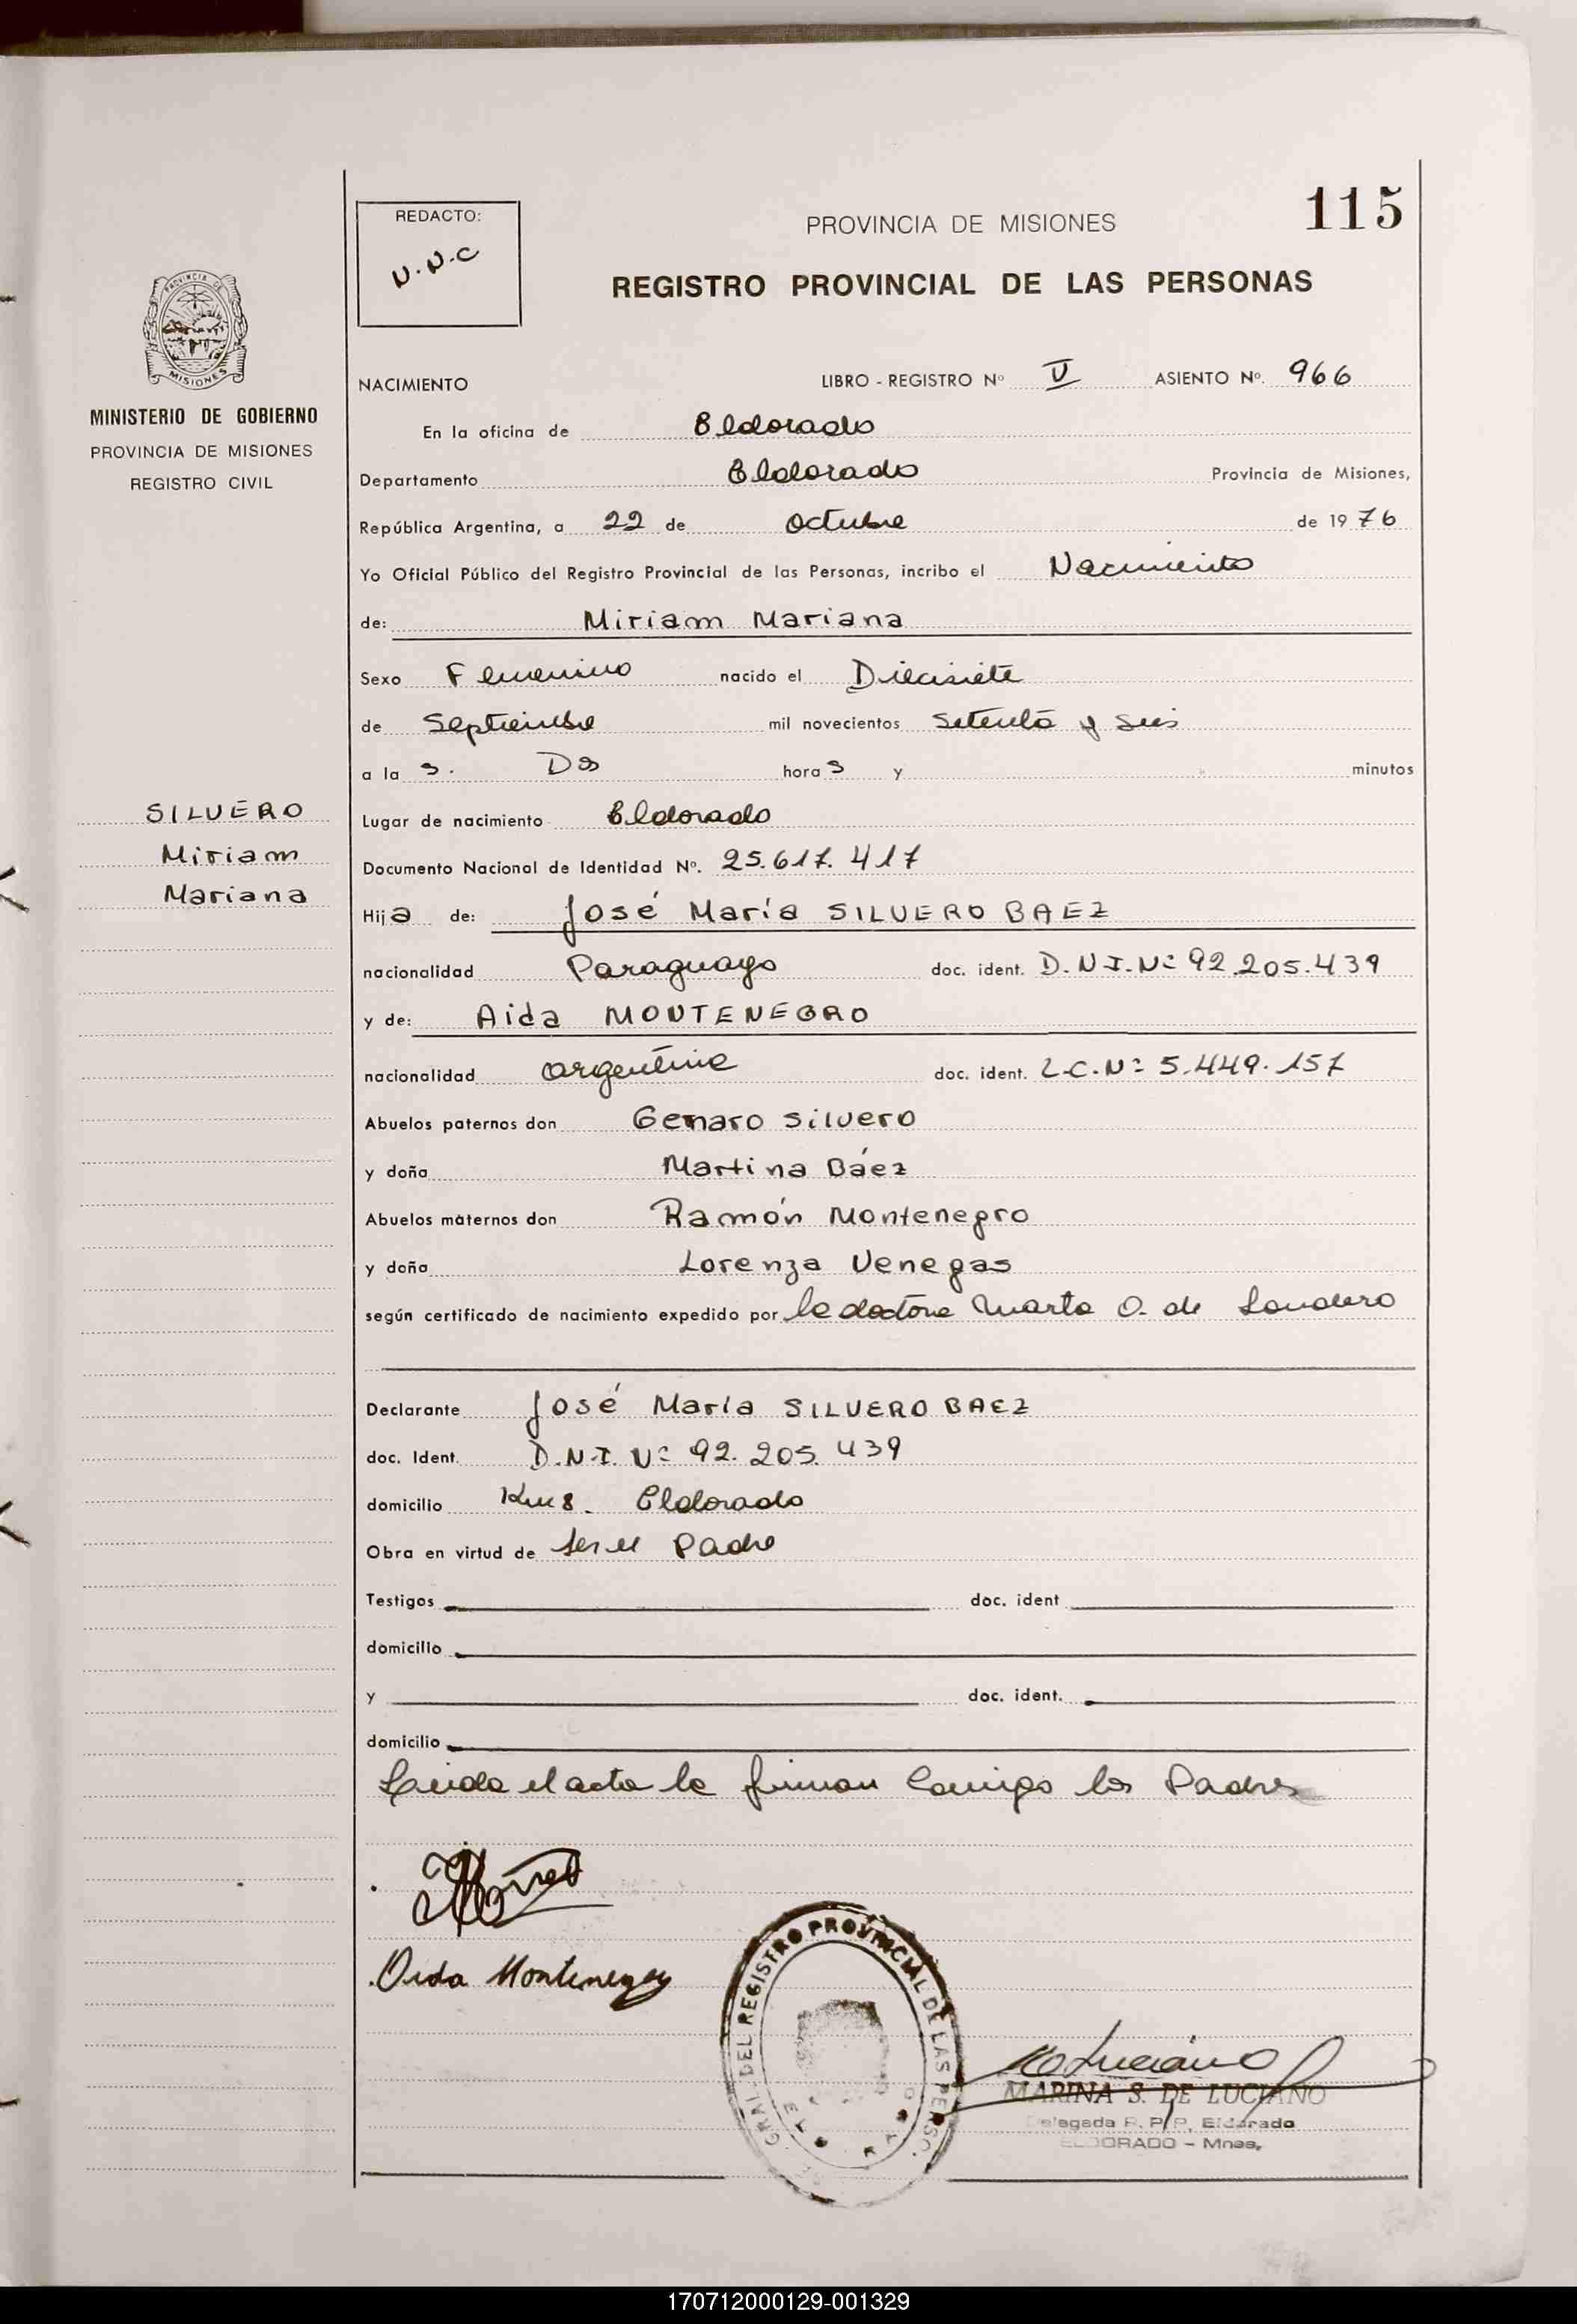 115
REDACTO:
N.N.C
PROVINCIA DE MISIONES
REGISTRO PROVINCIAL DE LAS PERSONAS
PROVINCIA DE
MISIONES
MINISTERIO DE GOBIERNO
PROVINCIA DE MISIONES
REGISTRO CIVIL
SILVERO
Miriam
Mariana
NACIMIENTO LIBRO - REGISTRO Nº V ASIENTO Nº. 966
En la oficina de Eldorado
Departamento Eldorado Provincia de Misiones,
República Argentina, a 22 de octubre de 1976
Yo Oficial Público del Registro Provincial de las Personas, incribo el Nacimiento
de: Miriam Mariana
Sexo Femenino nacido el Diecisiete
de Septiembre mil novecientos setenta y seis
a la s. Dos hora s y minutos
Lugar de nacimiento Eldorado
Documento Nacional de Identidad Nº. 25.617.417
Hija de: José María SILVERO BAEZ
nacionalidad Paraguayo doc. ident. D.N.I.Nº 92.205.439
y de: Aida MONTENEGRO
nacionalidad argentina doc. ident. L.C.Nº 5.449.157
Abuelos paternos don Genaro Silvero
y doña Martina Báez
Abuelos maternos don Ramón Montenegro
y doña Lorenza Venegas
según certificado de nacimiento expedido por la doctora Marta O. de Landero
Declarante José María SILVERO BAEZ
doc. Ident. D.N.I. Nº 92.205.439
domicilio Km 8. Eldorado
Obra en virtud de ser el Padre
Testigos doc. ident
domicilio
y doc. ident.
domicilio
Leída el acta la firman conmigo los Padres
Aida Montenegro
GRAL. DEL REGISTRO PROVINCIAL DE LAS PERSO.
MARINA S. DE LUCIANO
Delegada R. P. P. Eldorado
ELDORADO - Mnes.
170712000129-001329